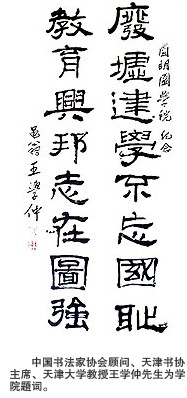 圓明園學院 紀念
廢墟建學不忘國恥
教育興邦志在圖強
黽翁王學仲
中国书法家协会顾问、天津书协
主席、天津大学教授王学仲先生为学
院题词。